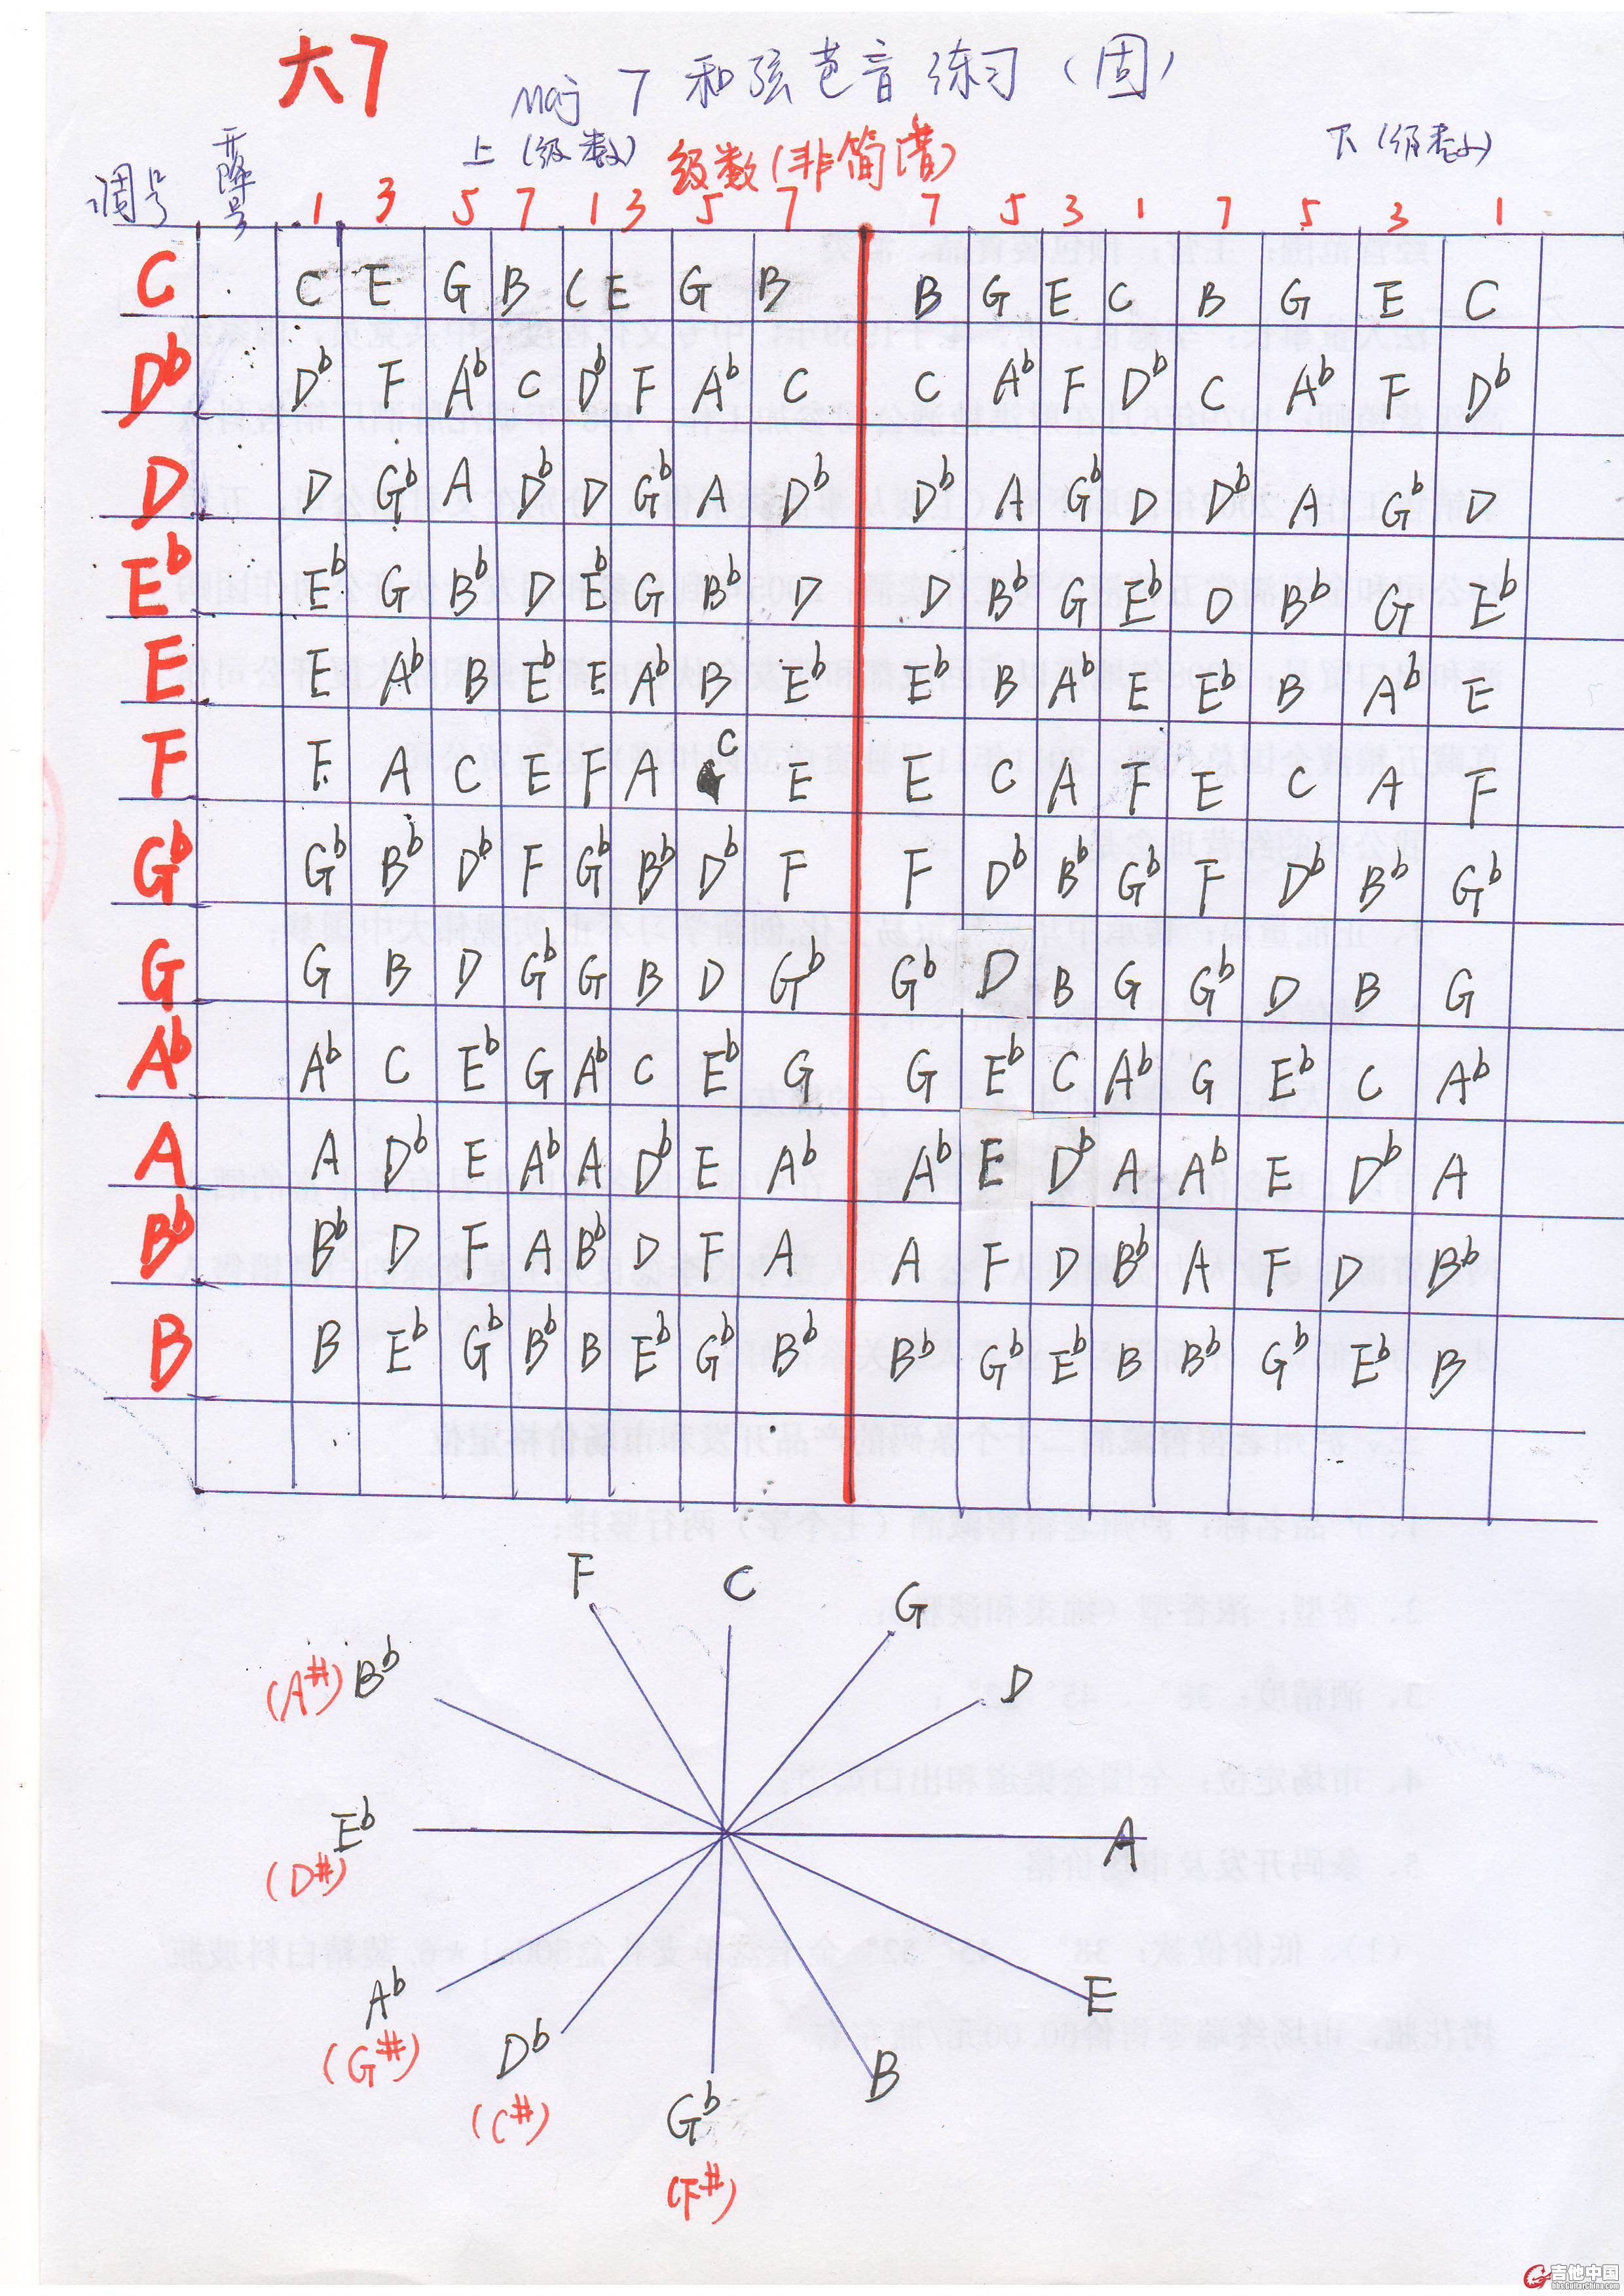 大7
Maj 7 和弦芭音练习(固)
上(级数) 级数(非简谱) 下(级数)
调号 升降号 1 3 5 7 1 3 5 7 7 5 3 1 7 5 3 1
C C E G B C E G B B G E C B G E C
Db Db F Ab C Db F Ab C C Ab F Db C Ab F Db
D D Gb A Db D Gb A Db Db A Gb D Db A Gb D
Eb Eb G Bb D Eb G Bb D D Bb G Eb D Bb G Eb
E E Ab B Eb E Ab B Eb Eb B Ab E Eb B Ab E
F F A C E F A C E E C A F E C A F
Gb Gb Bb Db F Gb Bb Db F F Db Bb Gb F Db Bb Gb
G G B D Gb G B D Gb Gb D B G Gb D B G
Ab Ab C Eb G Ab C Eb G G Eb C Ab G Eb C Ab
A A Db E Ab A Db E Ab Ab E Db A Ab E Db A
Bb Bb D F A Bb D F A A F D Bb A F D Bb
B B Eb Gb Bb B Eb Gb Bb Bb Gb Eb B Bb Gb Eb B
F C G
(A#) Bb D
Eb A
(D#)
Ab E
(G#) Db B
(C#) Gb
(F#)
吉他中国
bbs.GuitarChina.com